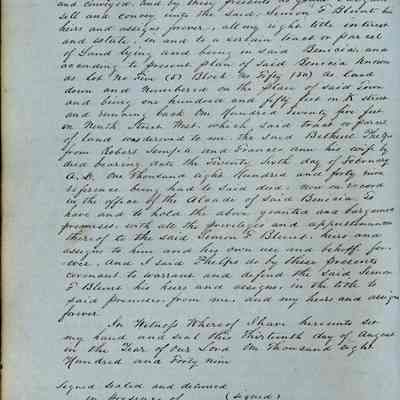 and conveyed, and by these presents do grant bargain
sell and convey unto the said, Simon F Blunt his
heirs and assigns forever, all my right title interest
and estate, in and to a certain tract or parcel
of Land lying and being in said Benicia, and
according to present plan of said Benicia Known
as Lot No Five (5) Block No Fifty (50) as laid
down and Numbered on the Plan of said Town
and being one hundred and fifty feet on K street
and running back One Hundred Twenty five feet
on Ninth Street West. which, said tract or parcel
of land was deeded to me. The said Bethuel Phelps
from Robert Semple and Frances Ann his wife by
deed bearing date the Twenty Sixth day of February
A.D. One Thousand eight Hundred and forty nine
reference being had to said deed, now on record
in the office of the Alcade of said Benicia To
have and to hold the above granted and bargained
premises, with all the privileges and appurtenances
thereof to the said Simon F. Blunt, heirs and
assigns to him and his own use and behoff for-
ever, And I said Phelps do by these presents
covenant to warrant and defend the said Simon
F Blunt his heirs and assigns, in the title to
said premises from me, and my heirs and assigns
forever
In Witness Whereof I have hereunto set
my hand and seal this Thirteenth day of August
in the Year of our Lord One Thousand eight
Hundred and Forty nine
Signed sealed and delivered
in presence of (signed)